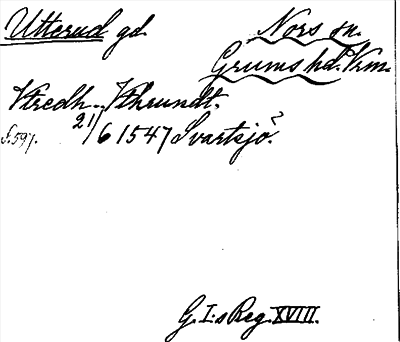 Utterud gd. Nors sn.
Grums hd. Vrm.
Utredh - Uthrundt.
s. 597. 21/6 1547 Svartsjö?
G. I:s Reg. XVIII.